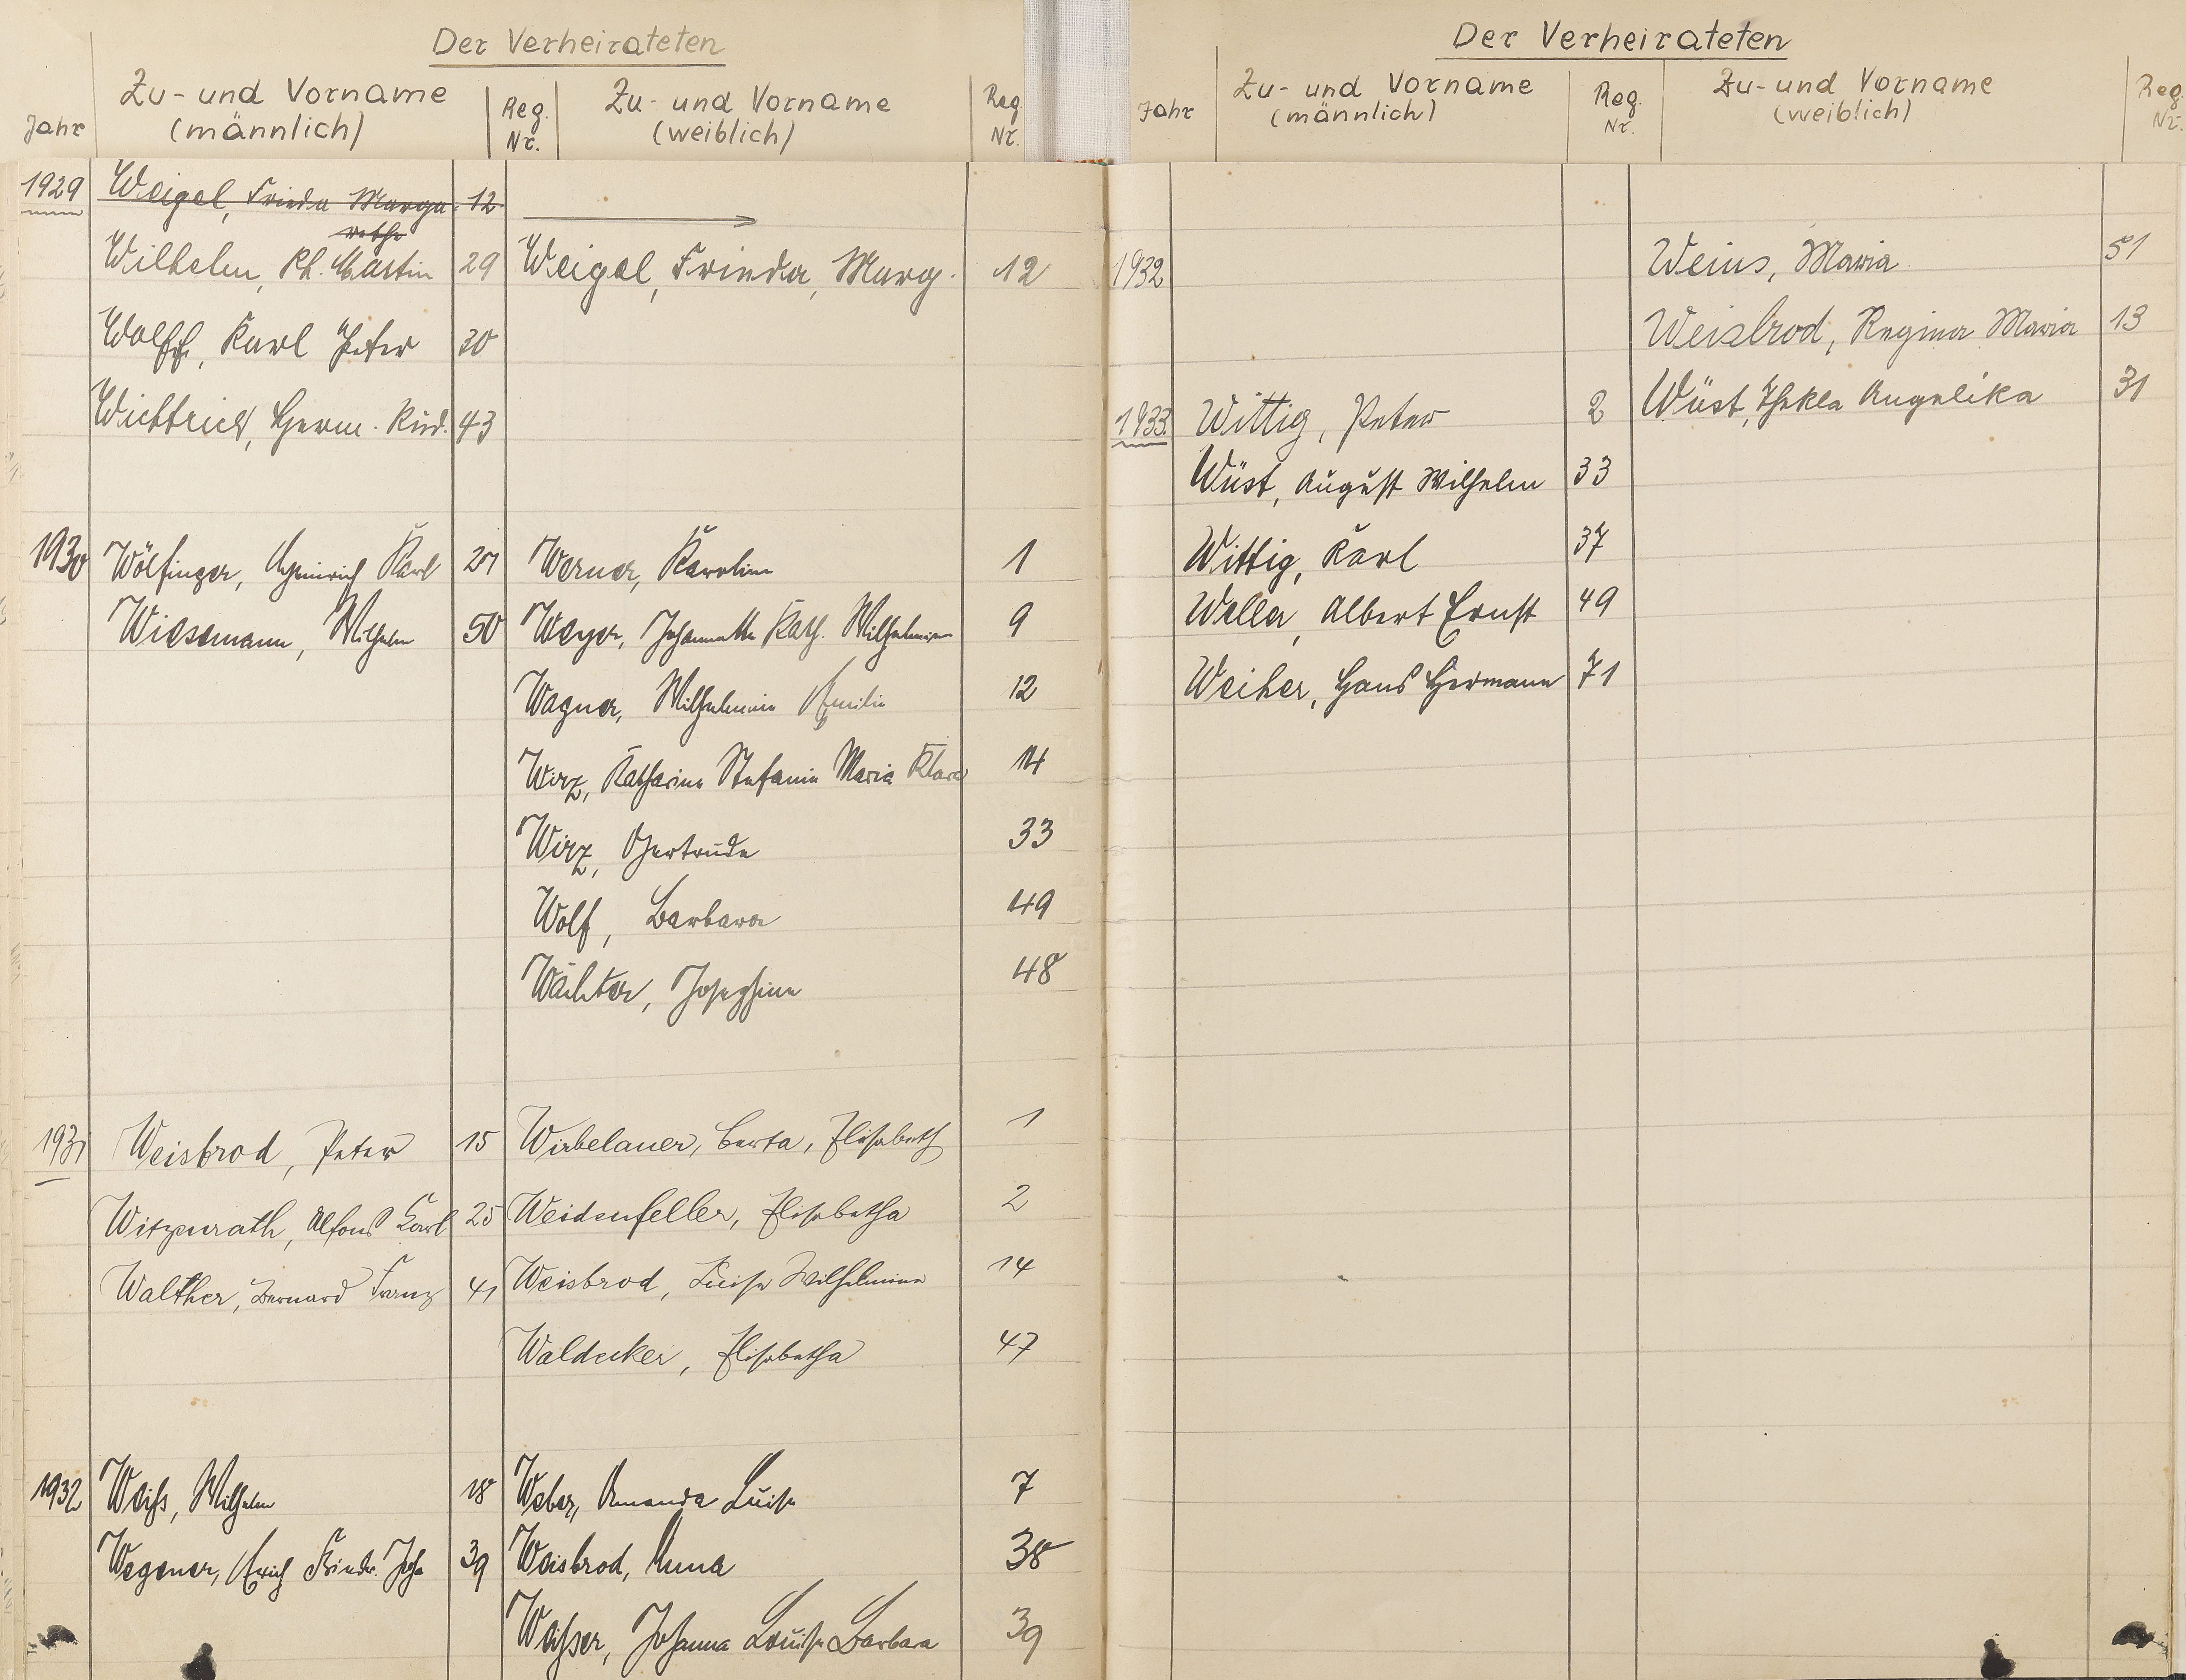 Der Verheirateten
Jahr Zu- und Vorname (männlich) Reg. Nr. Zu- und Vorname (weiblich) Reg. Nr.
1929 Weigel, Frieda Marga- 12
rethe
Wilhelm, Ph. Martin 29 Weigel, Frieda, Marg. 12
Wolff, Karl Peter 30
Herm. Rud. 43
1930 Wölfinger, Heinrich Karl 27 Werner, Karolina 1
Wiesemann, Wilhelm 50 Weyer, Johannette Kath. Wilhelmine 9
Wagner, Wilhelmine Emilie 12
Wirz, Katharina Stefanie Maria Klara 14
Wirz, Gertrude 33
Wolf, Barbara 49
Wächter, Josephine 48
1931 Weisbrod, Peter 15 Wirbelauer, Berta, Elisabeth 1
Witzenrath, Alfons Karl 25 Weidenfeller, Elisabetha 2
Walther, Bernard Franz 41 Weisbrod, Luise Wilhelmine 14
Waldecker, Elisabetha 47
1932 Weiß, Wilhelm 18 Weber, Amanda Luise 7
Wegener, Erich Friedr. Joh. 39 Weisbrod, Anna 38
Waßer, Johanna Louise Barbara 39
Der Verheirateten
Jahr Zu- und Vorname (männlich) Reg. Nr. Zu- und Vorname (weiblich) Reg. Nr.
1932 Weins, Maria 51
Weisbrod, Regina Maria 13
1933 Wittig, Peter 2 Wüst, Thekla Angelika 31
Wüst, August Wilhelm 33
Wittig, Karl 37
Weller, Albert Ernst 49
Weiher, Hans Hermann 71